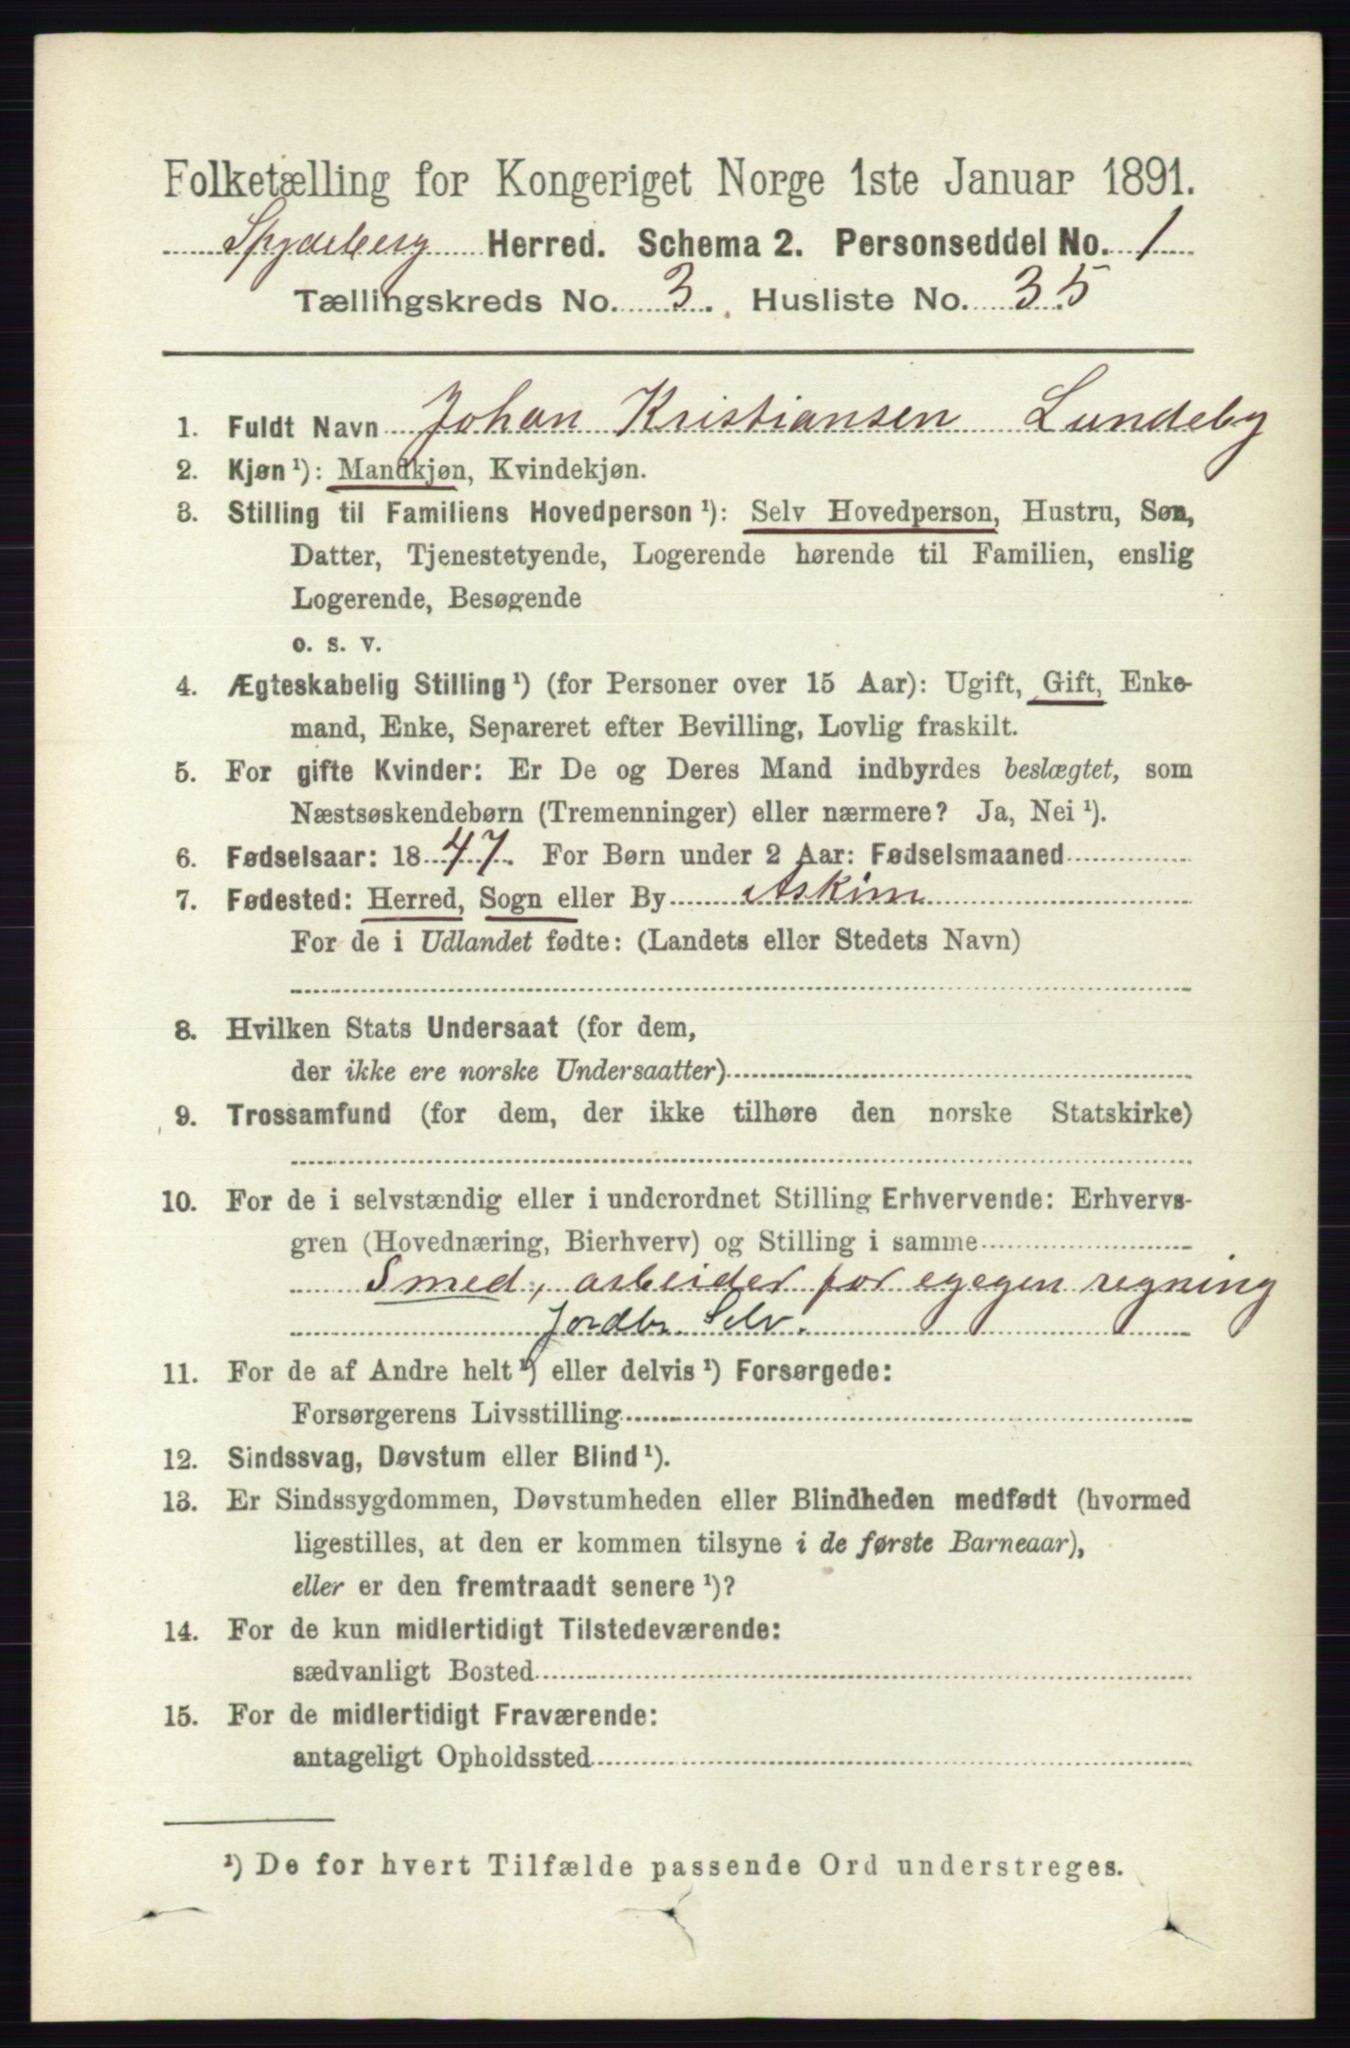 Folketælling for Kongeriget Norge 1ste Januar 1891.
Spydeberg Herred. Schema 2. Personseddel No. 1
Tællingskreds No. 3. Husliste No. 35
1. Fuldt Navn Johan Kristiansen Lundeby
2. Kjøn ¹): Mandkjøn, Kvindekjøn.
3. Stilling til Familiens Hovedperson ¹): Selv Hovedperson, Hustru, Søn,
Datter, Tjenestetyende, Logerende hørende til Familien, enslig
Logerende, Besøgende
o. s. v.
4. Ægteskabelig Stilling ¹) (for Personer over 15 Aar): Ugift, Gift, Enke-
mand, Enke, Separeret efter Bevilling, Lovlig fraskilt.
5. For gifte Kvinder: Er De og Deres Mand indbyrdes beslægtet, som
Næstsøskendebørn (Tremenninger) eller nærmere? Ja, Nei ¹).
6. Fødselsaar: 1847. For Børn under 2 Aar: Fødselsmaaned
7. Fødested: Herred, Sogn eller By Askim
For de i Udlandet fødte: (Landets eller Stedets Navn)
8. Hvilken Stats Undersaat (for dem,
der ikke ere norske Undersaatter)
9. Trossamfund (for dem, der ikke tilhøre den norske Statskirke)
10. For de i selvstændig eller i underordnet Stilling Erhvervende: Erhvervs-
gren (Hovednæring, Bierhverv) og Stilling i samme
Smed, arbeider for egegen regning
Jordbr. Selv.
11. For de af Andre helt ¹) eller delvis ¹) Forsørgede:
Forsørgerens Livsstilling
12. Sindssvag, Døvstum eller Blind ¹).
13. Er Sindssygdommen, Døvstumheden eller Blindheden medfødt (hvormed
ligestilles, at den er kommen tilsyne i de første Barneaar),
eller er den fremtraadt senere ¹)?
14. For de kun midlertidigt Tilstedeværende:
sædvanligt Bosted
15. For de midlertidigt Fraværende:
antageligt Opholdssted
¹) De for hvert Tilfælde passende Ord understreges.